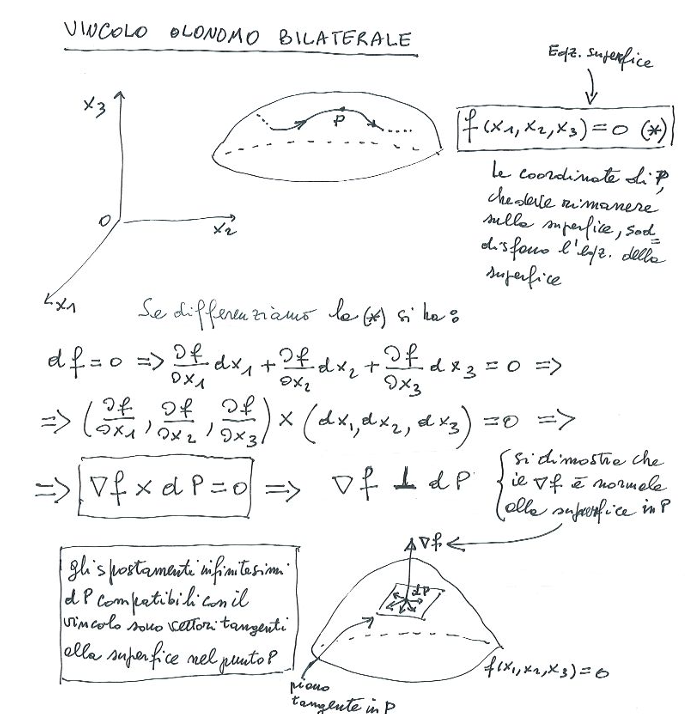 VINCOLO OLONOMO BILATERALE
Eqz. superfice
x3
P
f(x1,x2,x3)=0 (*)
O
x2
x1
Le coordinate di P,
che deve rimanere
sulla superfice, sod=
disfano l'eqz. della
superfice
Se differenziamo la (*) si ha:
df=0 => ∂f/∂x1 dx1 + ∂f/∂x2 dx2 + ∂f/∂x3 dx3 = 0 =>
=> (∂f/∂x1, ∂f/∂x2, ∂f/∂x3) × (dx1, dx2, dx3) = 0 =>
=> ∇f × dP = 0 => ∇f ⊥ dP
si dimostra che
ie ∇f è normale
alla superfice in P
gli spostamenti infinitesimi
dP compatibili con il
vincolo sono vettori tangenti
alla superfice nel punto P
∇f
dP
f(x1,x2,x3)=0
piano
tangente in P